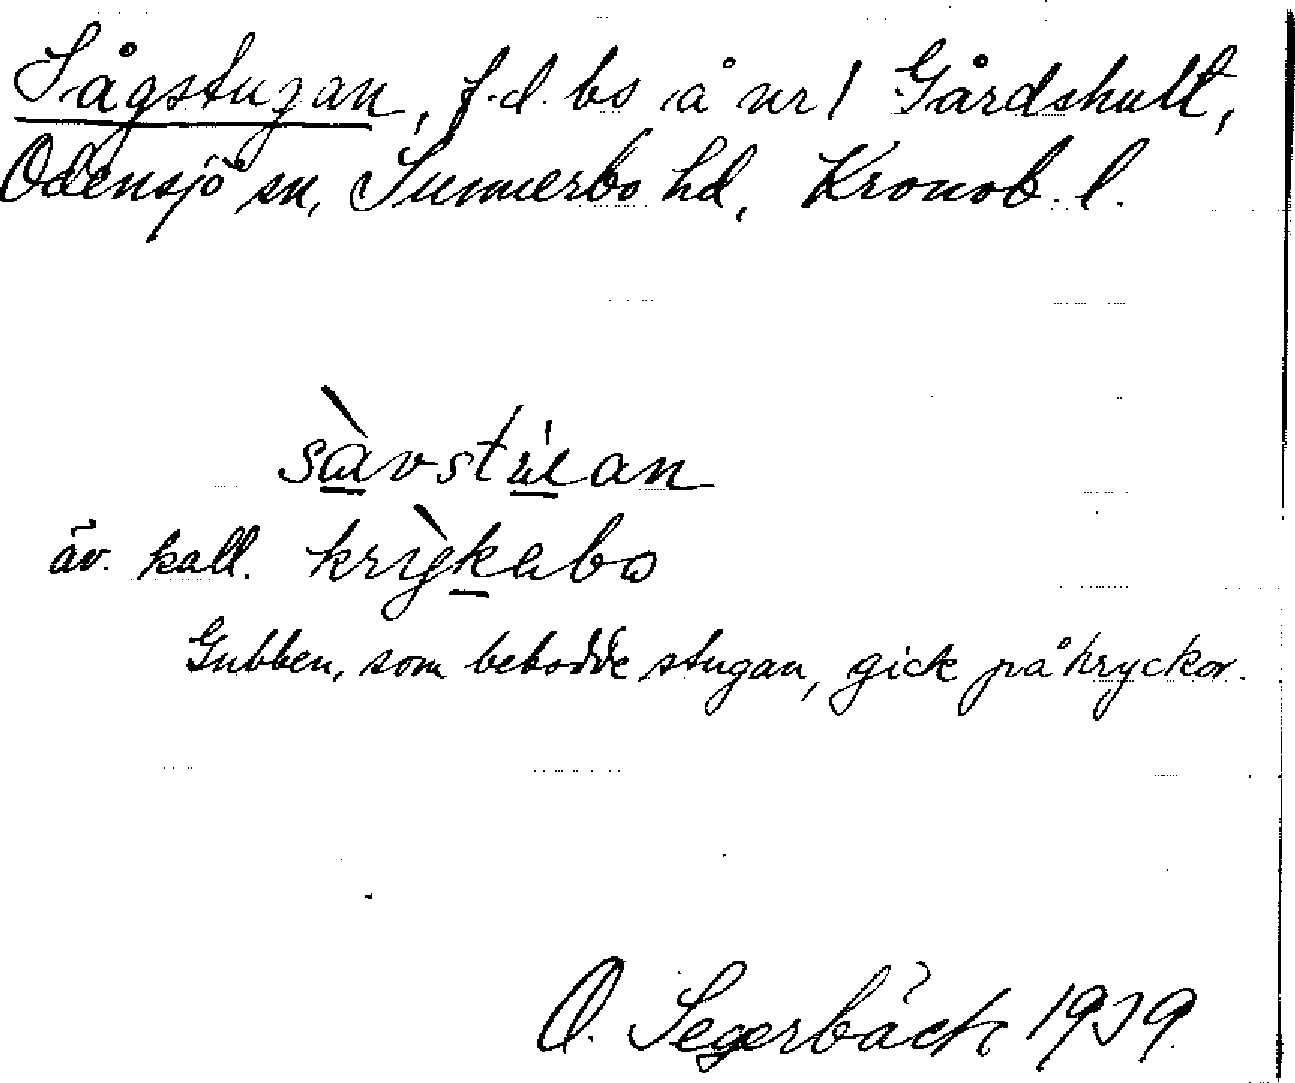 Sågstugan, f.d. bs å nr 1 Gårdshult,
Odensjö sn, Sunnerbo hd, Kronob. l.
sàvstúan
äv. kall. krỳkabo
Gubben, som bebodde stugan, gick på kryckor.
O. Segerbäck 1939